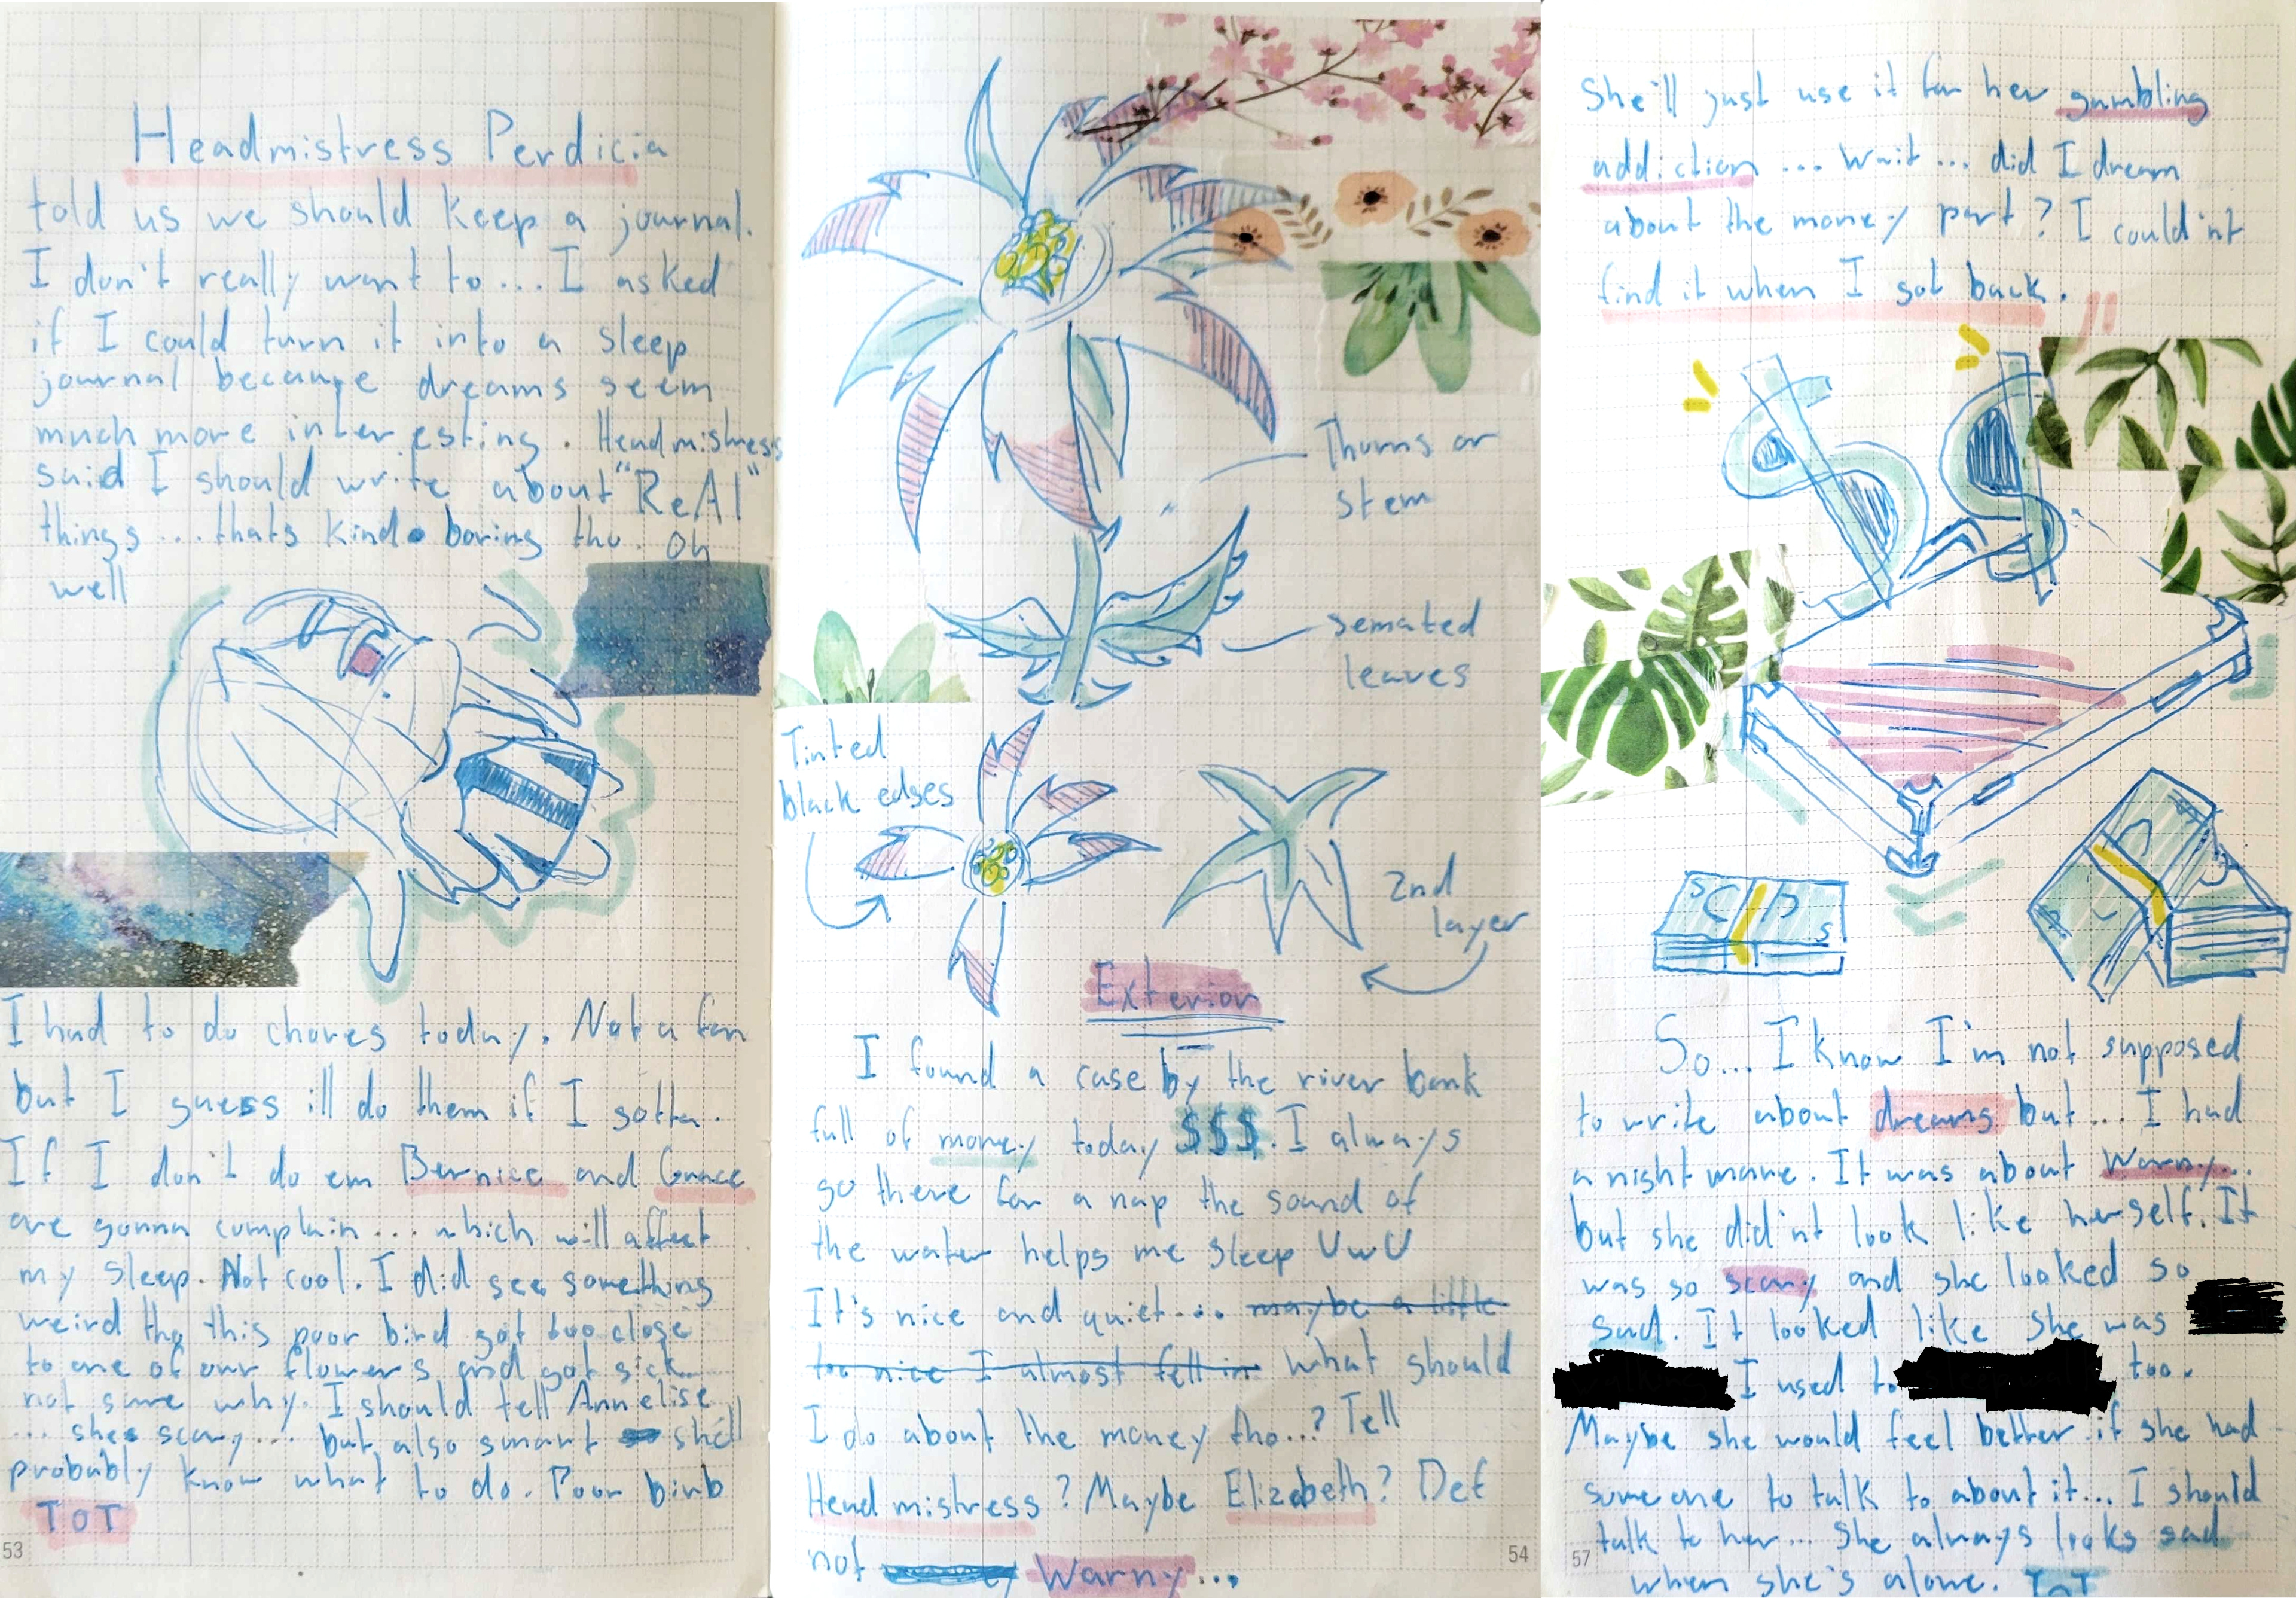 Headmistress Perdicia
told us we should keep a journal.
I don't really want to... I asked
if I could turn it into a sleep
journal because dreams seem
much more interesting. Headmistress
said I should write about "ReAl"
things... thats kinda boring tho. Oh
well
I had to do chores today. Not a fan
but I guess ill do them if I gotta.
If I don't do em Bernice and Grace
are gonna complain... which will affect
my sleep. Not cool. I did see something
weird tho this poor bird got too close
to one of our flowers and got sick...
not sure why. I should tell Annelise
... shes scary... but also smart she'll
probably know what to do. Poor birb
ToT
53
Thorns or
stem
serrated
leaves
Tinted
black edges
2nd
layer
Exterior
I found a case by the river bank
full of money today $$$. I always
go there for a nap the sound of
the water helps me sleep UwU
It's nice and quiet... maybe a little
too nice I almost fell in what should
I do about the money tho...? Tell
Headmistress? Maybe Elizabeth? Def
not Warny...
54
She'll just use it for her gambling
addiction... wait... did I dream
about the money part? I could'nt
find it when I got back. !!
So... I know I'm not supposed
to write about dreams but... I had
a nightmare. It was about Warny...
but she did'nt look like herself. It
was so scary and she looked so
sad. It looked like she was
I used to too.
Maybe she would feel better if she had
someone to talk to about it... I should
talk to her... She always looks sad
when she's alone. ToT
57